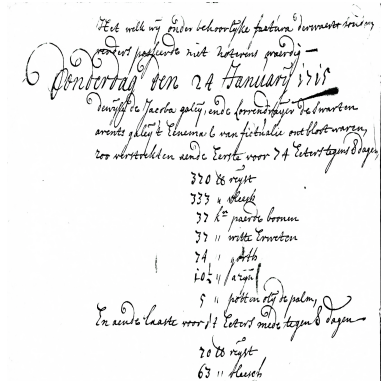 Het welk wij onder behoorlijke factura derwaarts
niet noterens waerdig
Donderdag den 24 Januarij 1715
dewijl de Jacoba galeij, ende Lorrendraijer de swarten
arents galeij 't Eenemael van fictualie ontbloot waren,
zoo verstrekten aende Eerste voor 74 Eeters tegens 8 dagen,
370 lb rijst
333 " vleesch
37 kn paerde boonen
37 " witte Erweten
74 " gorth
10½ " azijn
5 " potten olij de palm,
En aende laaste voor 14 Eeters mede tegen 8 dagen
70 lb rijst
63 " vleesch